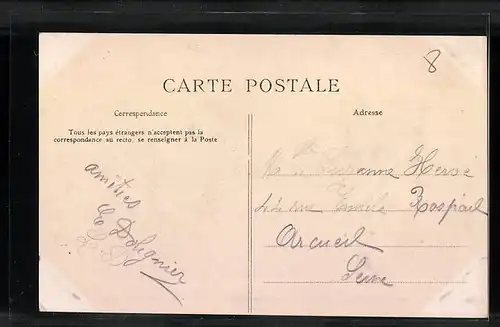 8
CARTE POSTALE
Correspondance
Adresse
Tous les pays étrangers n'acceptent pas la
correspondance au recto, se renseigner à la Poste
amitiés
E Dolignier
Suzanne Hervé
rue Emile Raspail
Arcueil
Seine